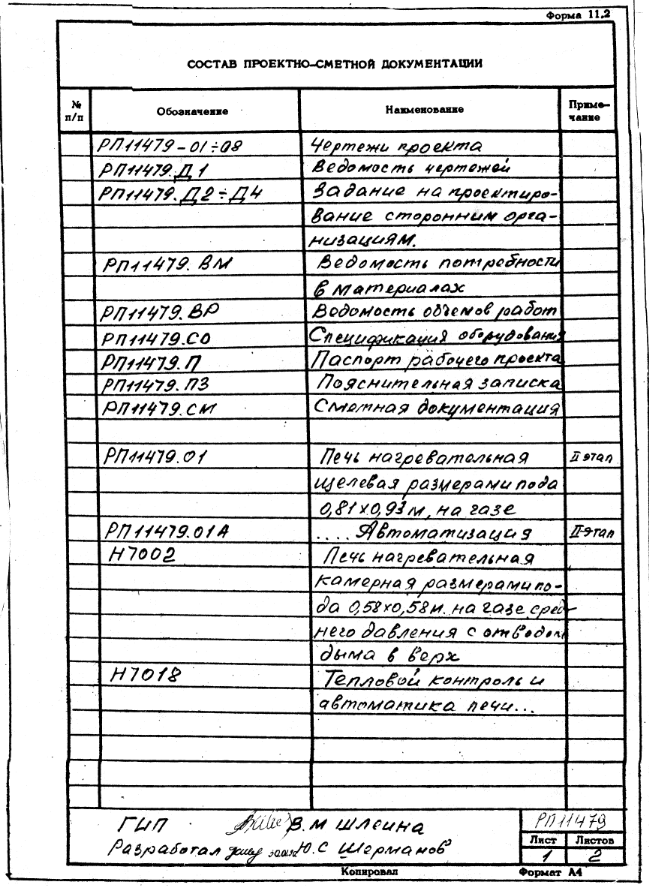 Форма 11.2
СОСТАВ ПРОЕКТНО-СМЕТНОЙ ДОКУМЕНТАЦИИ
№ п/п Обозначение Наименование Приме-
чание
РП11479-01÷08 Чертежи проекта
РП11479.Д1 Ведомость чертежей
РП11479.Д2÷Д4 Задание на проектиро-
вание сторонним орга-
низациям.
РП11479.ВМ Ведомость потребности
в материалах
РП11479.ВР Ведомость объемов работ
РП11479.СО Спецификация оборудования
РП11479.П Паспорт рабочего проекта
РП11479.ПЗ Пояснительная записка
РП11479.СМ Сметная документация
РП11479.01 Печь нагревательная II этап
щелевая размерами пода
0,81х0,93м, на газе
РП11479.01А .... Автоматизация II этап
Н7002 Печь нагревательная
камерная размерами по-
да 0,58х0,58м. на газе сред-
него давления с отводом
дыма в верх
Н7018 Тепловой контроль и
автоматика печи...
ГИП В.М Шлеина РП11479
Разработал Ю.С Шерманов Лист Листов
1 2
Копировал Формат А4